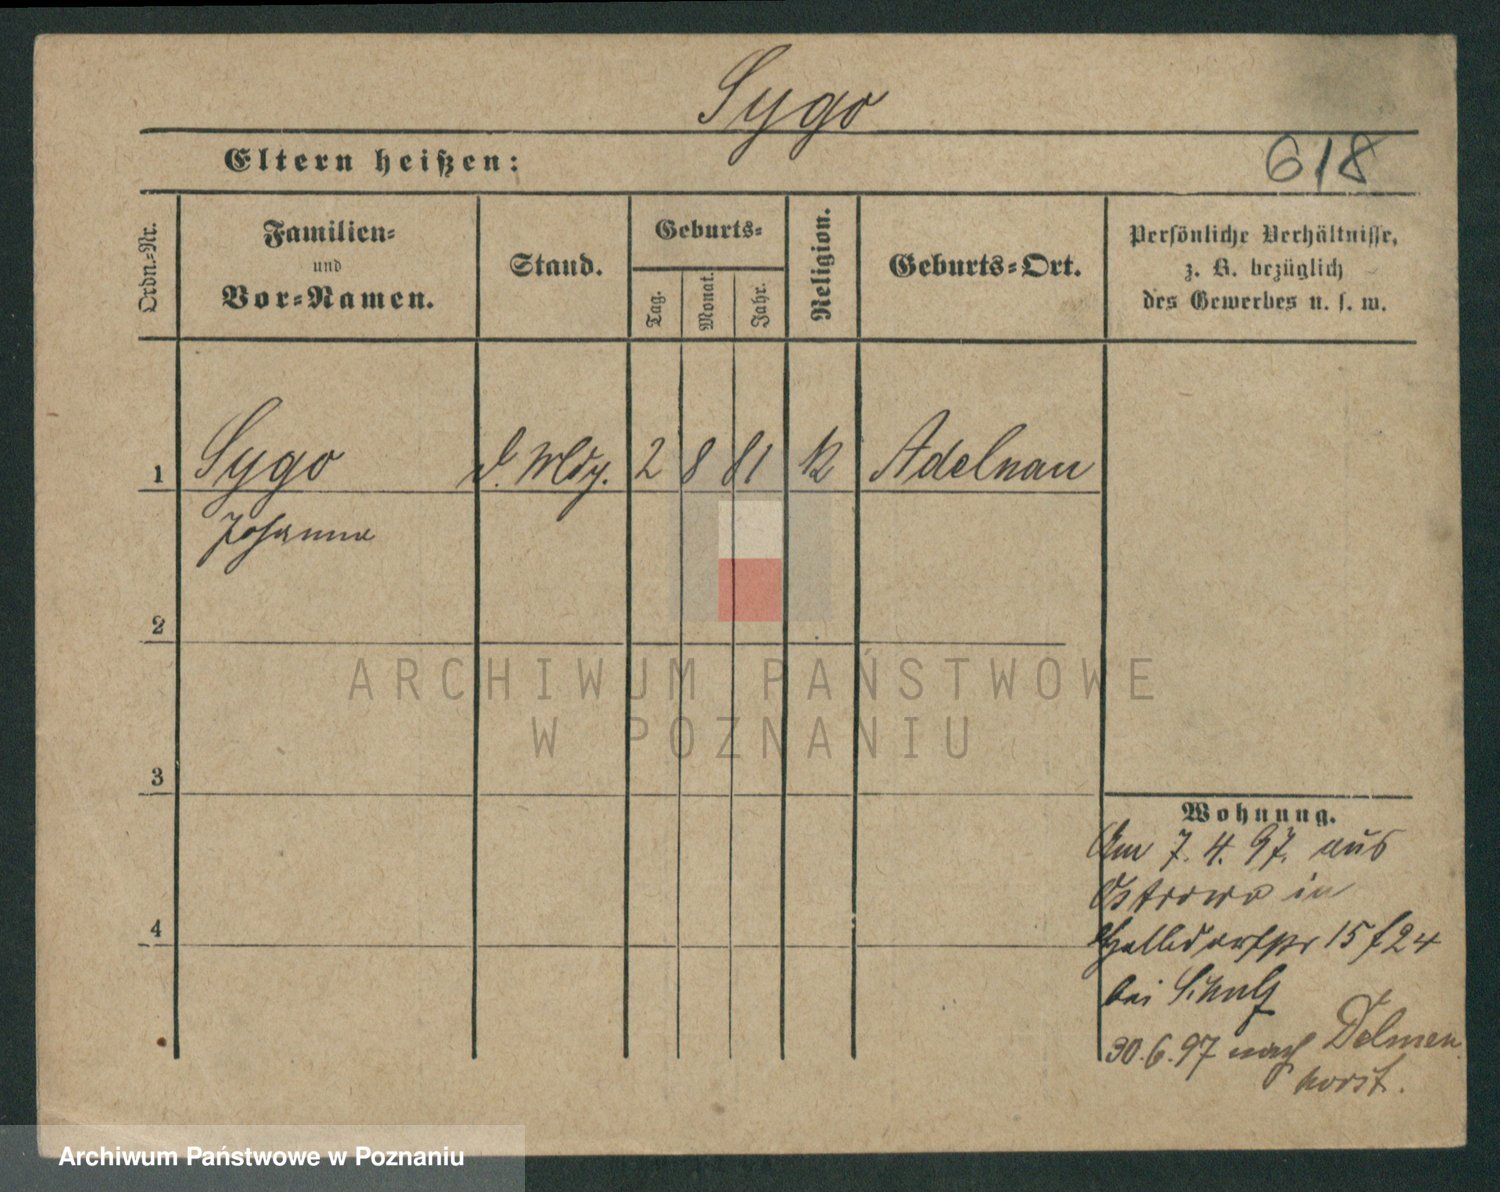 Sygo
Eltern heißen:
618
Ordn.-Nr.
Familien-
und
Vor-Namen.
Stand.
Geburts-
Tag.
Monat.
Jahr.
Religion.
Geburts-Ort.
Persönliche Verhältnisse,
z. B. bezüglich
des Gewerbes u. s. w.
1 Sygo 2 8 81 k Adelnau
Johanna
2
3
4
ARCHIWUM PAŃSTWOWE
W POZNANIU
Wohnung.
Am 7. 4. 97. aus
Ostrowo in
15 f 24
bei Schulz
30.6.97 nach Delmen
horst.
Archiwum Państwowe w Poznaniu